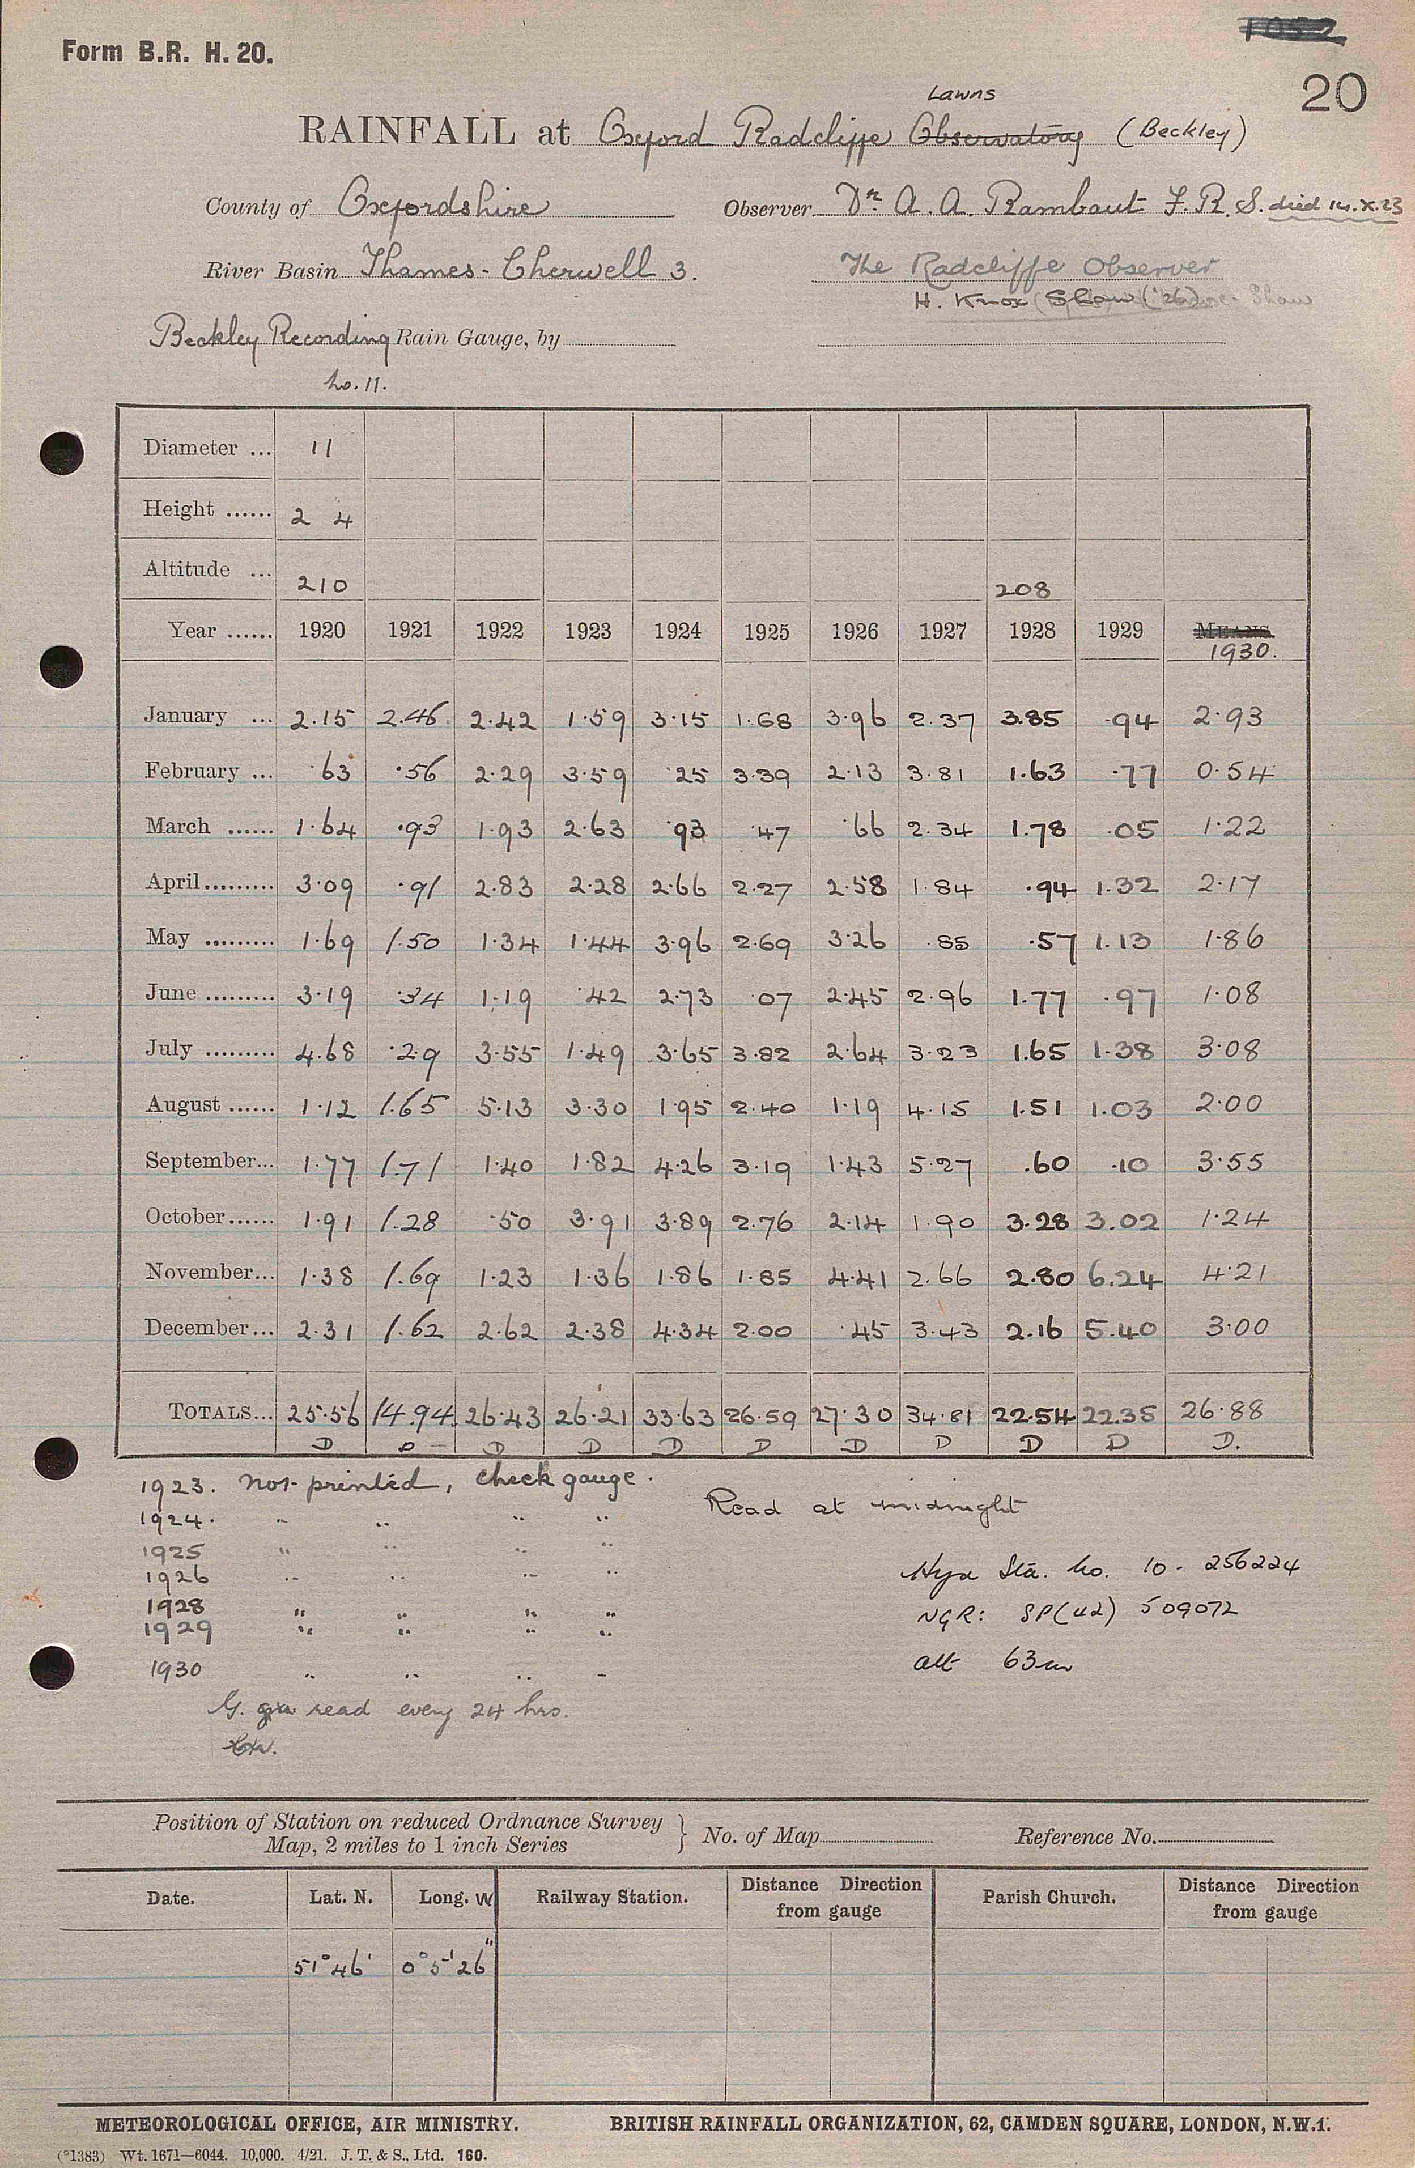 Form B.R. H. 20.
20
Lawns
RAINFALL at Oxford Radcliffe Observatory (Beckley)
County of Oxfordshire Observer Dr. A. A. Rambaut F.R.S. died 14.X.23
River Basin Thames-Cherwell 3. The Radcliffe Observer
H. Knox Shaw ('26)
Beckley Recording Rain Gauge, by
no. 11.
Diameter ... 11
Height ...... 2 4
Altitude ... 210 208
Year ...... 1920 1921 1922 1923 1924 1925 1926 1927 1928 1929 MEANS
1930.
January ... 2.15 2.46 2.42 1.59 3.15 1.68 3.96 2.37 3.85 .94 2.93
February ... .63 .56 2.29 3.59 .25 3.39 2.13 3.81 1.63 .77 0.54
March ...... 1.64 .93 1.93 2.63 .93 .47 .66 2.34 1.78 .05 1.22
April ......... 3.09 .91 2.83 2.28 2.66 2.27 2.58 1.84 .94 1.32 2.17
May ......... 1.69 1.50 1.34 1.44 3.96 2.69 3.26 .85 .57 1.13 1.86
June ......... 3.19 .34 1.19 .42 2.73 .07 2.45 2.96 1.77 .97 1.08
July ......... 4.68 .29 3.55 1.49 3.65 3.82 2.64 3.23 1.65 1.38 3.08
August ...... 1.12 1.65 5.13 3.30 1.95 2.40 1.19 4.15 1.51 1.03 2.00
September... 1.77 1.71 1.40 1.82 4.26 3.19 1.43 5.27 .60 .10 3.55
October...... 1.91 1.28 .50 3.91 3.89 2.76 2.14 1.90 3.28 3.02 1.24
November... 1.38 1.69 1.23 1.36 1.86 1.85 4.41 2.66 2.80 6.24 4.21
December... 2.31 1.62 2.62 2.38 4.34 2.00 .45 3.43 2.16 5.40 3.00
TOTALS... 25.56 14.94 26.43 26.21 33.63 26.59 27.30 34.81 22.54 22.35 26.88
D D D D D D D D D D.
1923. not printed, check gauge.
Read at midnight
1924. " " " "
1925 " " " "
1926 " " " "
1928 " " " "
1929 " " " "
1930 " " " "
Hyd Sta. no. 10. 256224
NGR: SP(42) 509072
alt 63m
G. read every 24 hrs.
Position of Station on reduced Ordnance Survey
Map, 2 miles to 1 inch Series } No. of Map Reference No.
Date. Lat. N. Long. W Railway Station. Distance Direction from gauge Parish Church. Distance Direction from gauge
51° 46' 0° 5' 26"
METEOROLOGICAL OFFICE, AIR MINISTRY. BRITISH RAINFALL ORGANIZATION, 62, CAMDEN SQUARE, LONDON, N.W.1.
(*1383) Wt. 1671—6044. 10,000. 4/21. J. T. & S., Ltd. 160.